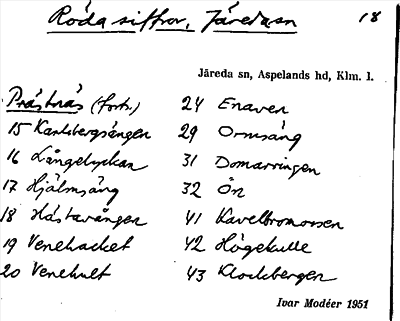 Röda siffror, Järeda sn
18
Järeda sn, Aspelands hd, Klm. l.
Prästnäs (forts.)
15 Karlsbergsängen
16 Långelyckan
17 Hjälmsäng
18 Hästavången
19 Venehacket
20 Venehult
24 Enaven
29 Ormsäng
31 Domarringen
32 Ön
41 Kavelbromossen
42 Högekulle
43 Klockbergen
Ivar Modéer 1951